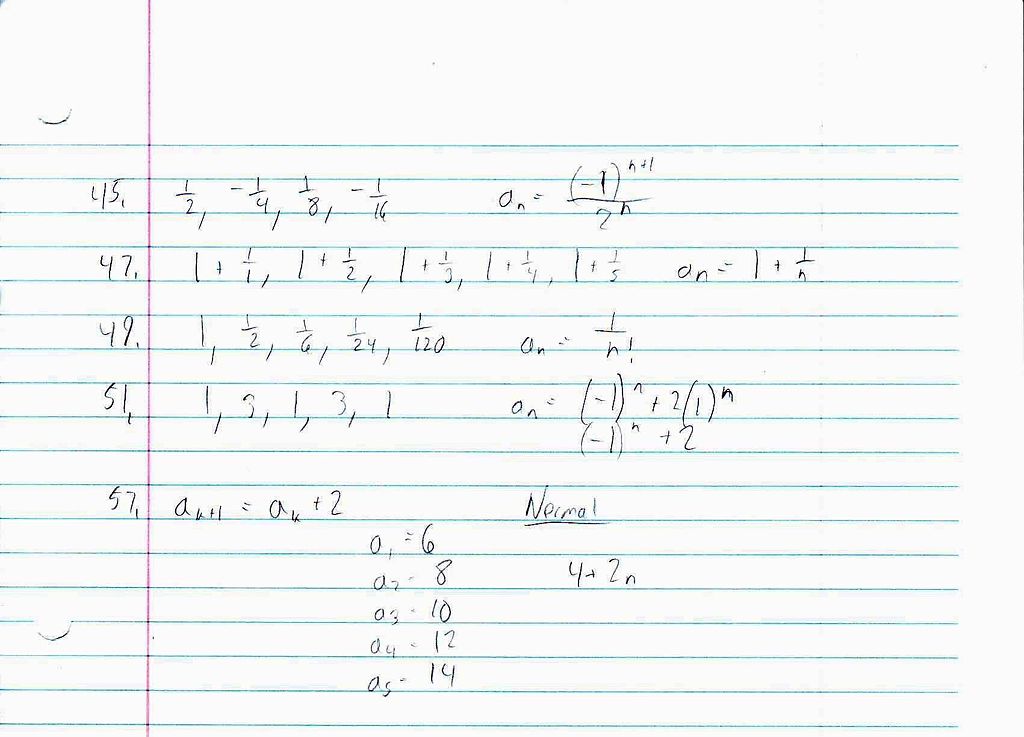 45. 1/2, -1/4, 1/8, -1/16 aₙ = (-1)ⁿ⁺¹/2ⁿ
47. 1 + 1/1, 1 + 1/2, 1 + 1/3, 1 + 1/4, 1 + 1/5 aₙ = 1 + 1/n
49. 1, 1/2, 1/6, 1/24, 1/120 aₙ = 1/n!
51. 1, 3, 1, 3, 1 aₙ = (-1)ⁿ + 2(1)ⁿ
(-1)ⁿ + 2
57. aₖ₊₁ = aₖ + 2 Normal
a₁ = 6
a₂ = 8 4+2n
a₃ = 10
a₄ = 12
a₅ = 14